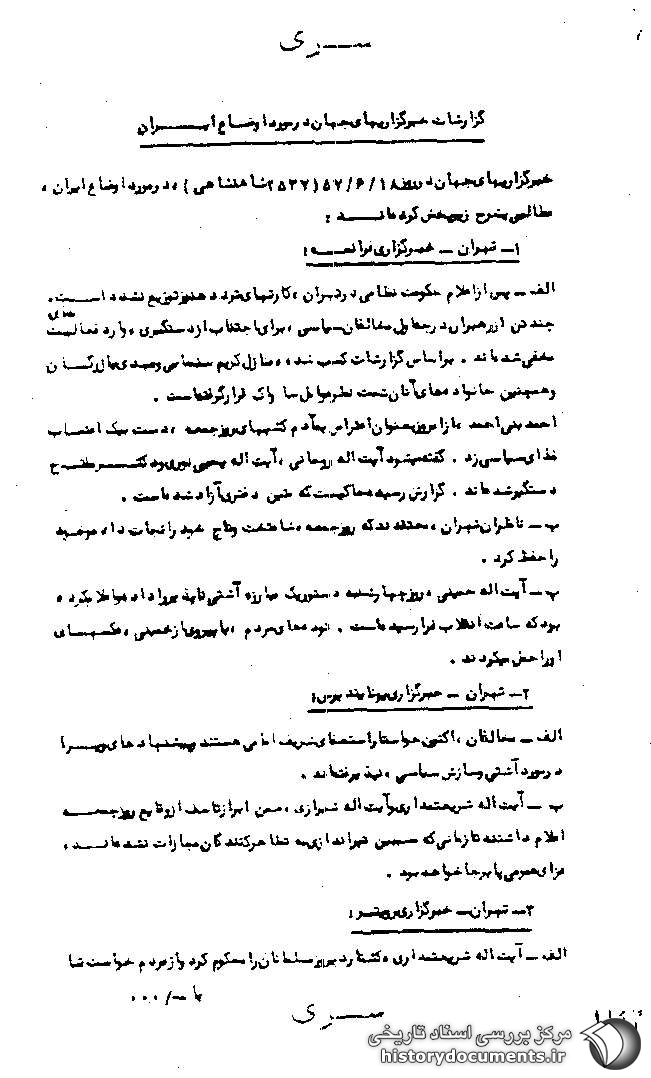 سری
گزارشات خبرگزاریهای جهان در مورد اوضاع ایران
خبرگزاریهای جهان در روز ۵۷/۶/۱۸ (۲۵۳۷ شاهنشاهی) ، در مورد اوضاع ایران ،
مطالبی بشرح زیر پخش کرده‌اند :
۱ـ تهران ـ خبرگزاری فرانسه :
الف ـ پس از اعلام حکومت نظامی در تهران ، کارتهای تردد هنوز توزیع نشده است .
چند تن از رهبران مخالفان سیاسی ، برای اجتناب از دستگیری ، وارد فعالیت های
مخفی شده‌اند . بر اساس گزارشات کسب شده ، منازل کریم سنجابی و مهدی بازرگان
و همچنین خانواده‌های آنان تحت نظر عوامل ساواک قرار گرفته است .
احمد بنی احمد ، از امروز بعنوان اعتراض به کشتار روز جمعه ، دست بیک اعتصاب
غذای سیاسی زد . گفته میشود آیت اله روحانی ، آیت اله یحیی نوری و دکتر مفتح
دستگیر شده‌اند . گزارش رسیده حاکیست که متین دفتری آزاد شده است .
ب ـ ناظران تهران ، معتقدند که روز جمعه ، شاه تخت و تاج خود را نجات داد
را حفظ کرد .
پ ـ آیت اله خمینی ، روز چهارشنبه دستور یک مبارزه آشتی ناپذیر را داد و اعلام کرده
بود که ساعت انقلاب فرا رسیده است . توده‌های مردم ، با پیروی از خمینی ، عکسهای
او را حمل میکردند .
۲ـ تهران ـ خبرگزاری یونایتدپرس :
الف ـ مخالفان ، اکنون خواستار استعفای شریف امامی هستند و پیشنهادهای وی را
در مورد آشتی و سازش سیاسی ، نپذیرفته‌اند .
ب ـ آیت اله شریعتمداری و آیت اله شیرازی ، ضمن ابراز تاسف از وقایع روز جمعه
اعلام داشتند تا زمانی که مسببین تیراندازی به تظاهرکنندگان مجازات نشده‌اند ،
عزای عمومی پابرجا خواهد بود .
۳ـ تهران ـ خبرگزاری رویتر :
الف ـ آیت اله شریعتمداری ، کشتار دیروز مسلمانان را محکوم کرد و از مردم خواست تا
با ... /۰۰۰
سری
مرکز بررسی اسناد تاریخی
historydocuments.ir